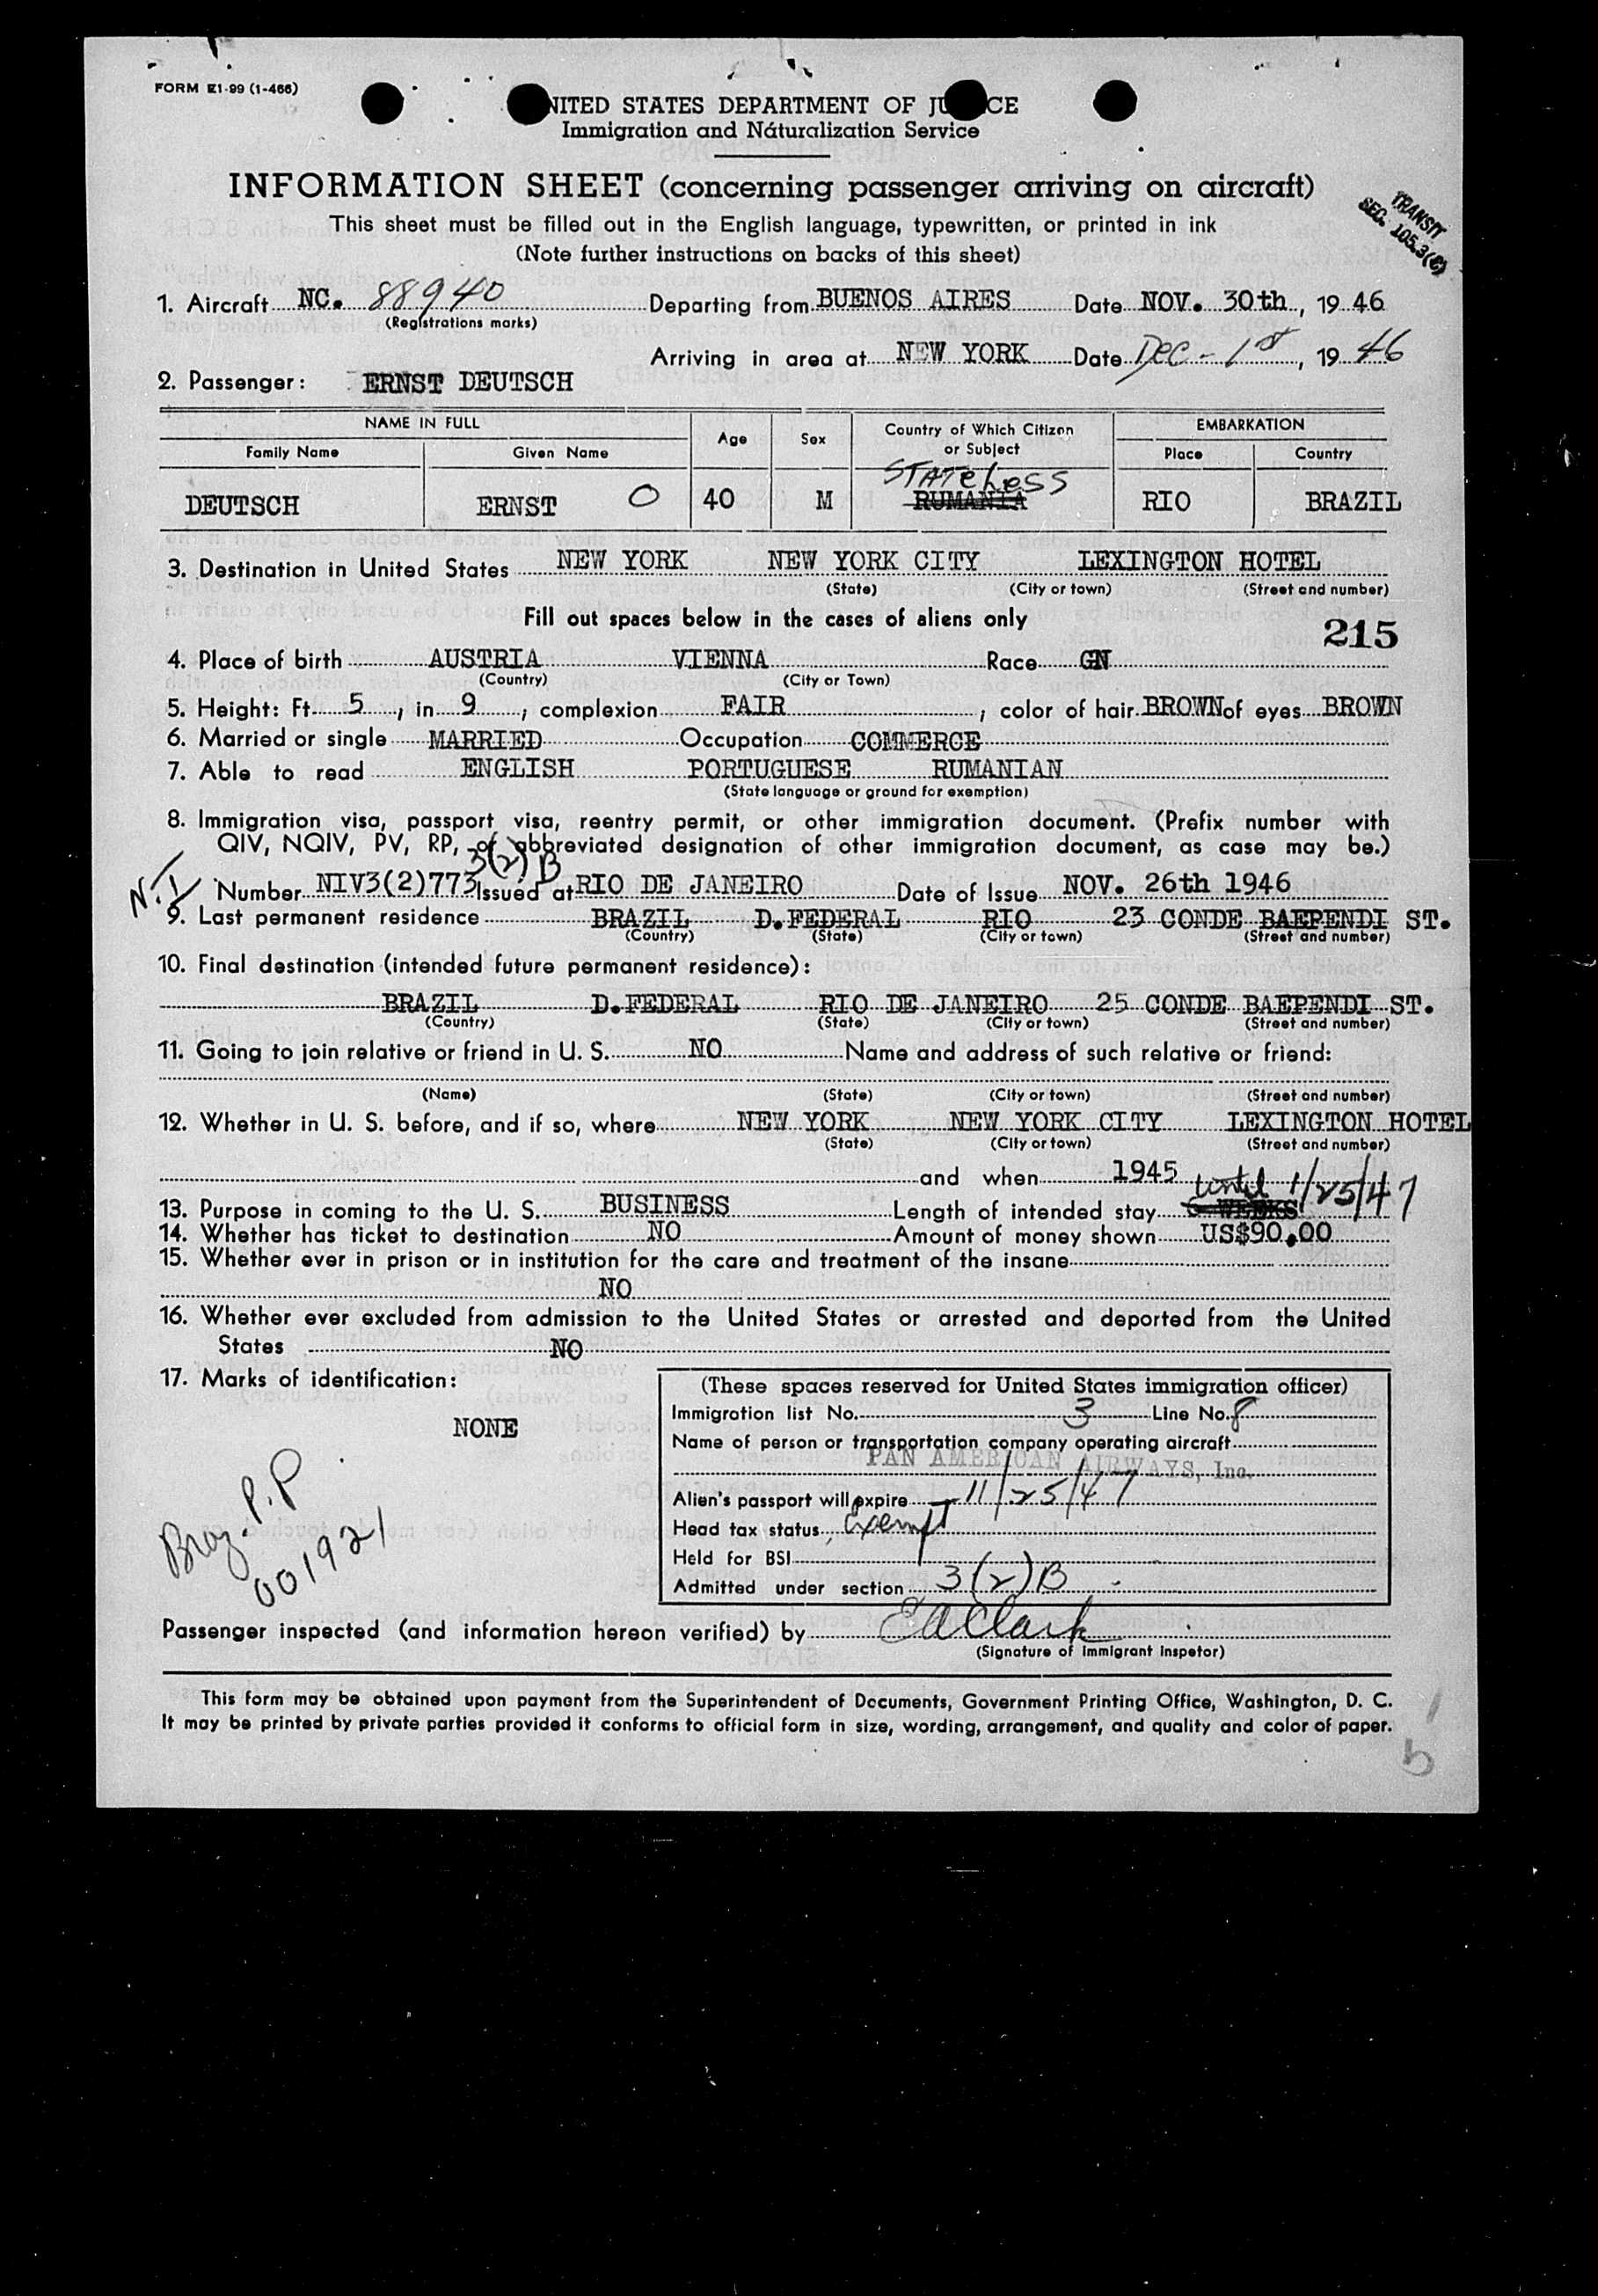 FORM I-99 (1-466)
UNITED STATES DEPARTMENT OF JUSTICE
Immigration and Naturalization Service
INFORMATION SHEET (concerning passenger arriving on aircraft)
This sheet must be filled out in the English language, typewritten, or printed in ink
(Note further instructions on backs of this sheet)
TRANSIT
SEC. 105.3(C)
1. Aircraft NC. 88940 Departing from BUENOS AIRES Date NOV. 30th, 19 46
(Registrations marks)
Arriving in area at NEW YORK Date Dec - 1st, 19 46
2. Passenger: ERNST DEUTSCH
NAME IN FULL Age Sex Country of Which Citizen or Subject EMBARKATION
Family Name Given Name Place Country
STATELESS
DEUTSCH ERNST O 40 M RUMANIA RIO BRAZIL
3. Destination in United States NEW YORK NEW YORK CITY LEXINGTON HOTEL
(State) (City or town) (Street and number)
Fill out spaces below in the cases of aliens only
215
4. Place of birth AUSTRIA VIENNA Race GN
(Country) (City or Town)
5. Height: Ft 5, in 9; complexion FAIR; color of hair BROWN of eyes BROWN
6. Married or single MARRIED Occupation COMMERCE
7. Able to read ENGLISH PORTUGUESE RUMANIAN
(State language or ground for exemption)
8. Immigration visa, passport visa, reentry permit, or other immigration document. (Prefix number with
QIV, NQIV, PV, RP, or abbreviated designation of other immigration document, as case may be.)
3(2)B
N.I Number NIV3(2)773 Issued at RIO DE JANEIRO Date of Issue NOV. 26th 1946
9. Last permanent residence BRAZIL D.FEDERAL RIO 23 CONDE BAEPENDI ST.
(Country) (State) (City or town) (Street and number)
10. Final destination (intended future permanent residence):
BRAZIL D.FEDERAL RIO DE JANEIRO 25 CONDE BAEPENDI ST.
(Country) (State) (City or town) (Street and number)
11. Going to join relative or friend in U. S. NO Name and address of such relative or friend:
(Name) (State) (City or town) (Street and number)
12. Whether in U. S. before, and if so, where NEW YORK NEW YORK CITY LEXINGTON HOTEL
(State) (City or town) (Street and number)
and when 1945
until 1/25/47
13. Purpose in coming to the U. S. BUSINESS Length of intended stay WEEKS
14. Whether has ticket to destination NO Amount of money shown US$90.00
15. Whether ever in prison or in institution for the care and treatment of the insane
NO
16. Whether ever excluded from admission to the United States or arrested and deported from the United
States NO
17. Marks of identification:
NONE
Braz. P.P
001921
(These spaces reserved for United States immigration officer)
Immigration list No. 3 Line No. 8
Name of person or transportation company operating aircraft
PAN AMERICAN AIRWAYS, Inc.
Alien's passport will expire 11/25/47
Head tax status Exempt
Held for BSI
Admitted under section 3(2)B
Passenger inspected (and information hereon verified) by EAClark
(Signature of Immigrant Inspetor)
This form may be obtained upon payment from the Superintendent of Documents, Government Printing Office, Washington, D. C.
It may be printed by private parties provided it conforms to official form in size, wording, arrangement, and quality and color of paper.